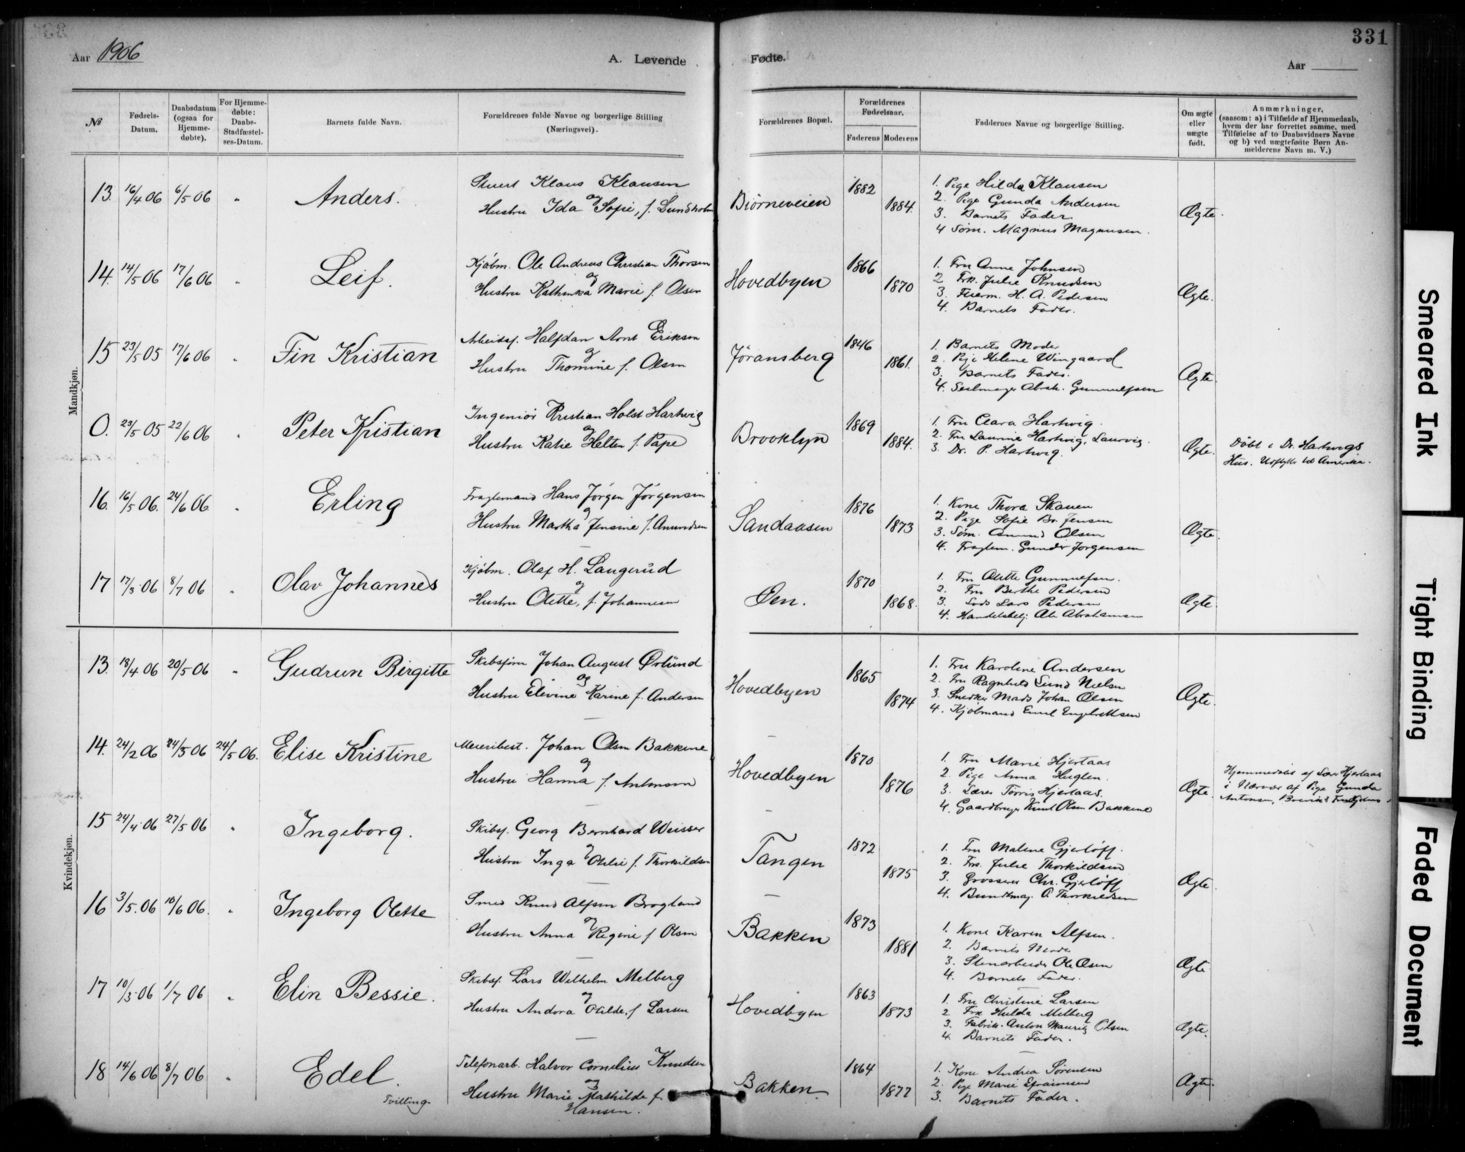 331
Aar 1906
A. Levende Fødte.
Aar
№
Fødsels-Datum.
Daabsdatum (ogsaa for Hjemme-døbte).
For Hjemme-døbte: Daabs-Stadfæstel-ses-Datum.
Barnets fulde Navn.
Forældrenes fulde Navne og borgerlige Stilling (Næringsvei).
Forældrenes Bopæl.
Forældrenes Fødselsaar.
Faderens Moderens
Faddernes Navne og borgerlige Stilling.
Om ægte eller uægte født.
Anmærkninger,
(saasom: a) i Tilfælde af Hjemmedaab, hvem der har forrettet samme, med Tilføielse af to Daabsvidners Navne og b) ved uægtefødte Børn An-meiderens Navn m. V.)
Mandkjøn.
13. 16/4 06 6/5 06 " Anders. Klaus Klausen
og
Hustru Ida Sofie, f. Lundholm
Bjørneveien 1882 1884.
1. Pige Hilda Klausen
2. Pige Gunda Andersen
3. Barnets Fader
4 Søm. Magnus Magnusen.
Ægte.
14. 14/5 06 17/6 06 Leif.
Kjøbm. Ole Andreas Christian Thorsen
og
Hustru Kathinka Marie f. Olsen
Hovedbyen 1866 1870
1. Fru Anne Johnsen
2 Frk. Julie Knudsen
3. H. A. Pedersen
4. Barnets Fader.
Ægte.
15 23/5 05 17/6 06 " Fin Kristian
Arbeidsf. Halfdan Arnt Eriksen
og
Hustru Thomine f. Olsen
Jøransberg 1846 1861.
1. Barnets Moder
2. Pige Helene Wingaard
3. Barnets Fader.
4. Seilmager Abrah. Gunnulfsen
Ægte.
0. 29/5 05 22/6 06 " Peter Kristian
Ingeniør Kristian Holst Hartvig
og
Hustru Katie Helten f. Pape
Brooklyn 1869 1884.
1. Fru Clara Hartvig.
2. Fru Laurine Hartvig, Laurvig.
3. Dr. P. Hartvig.
Ægte.
Døbt i Dr. Hartvigs
Hus. til Amerika.
16. 16/5 06. 24/6 06 " Erling
Fragtemand Hans Jørgen Jørgensen
og
Hustru Martha Jensine f. Amundsen
Sandaasen 1876 1873
1. Kone Thora Skauen
2. Pige Sofie Br. Jensen
3. Søm. Amund Olsen
4. Fragtem. Gunder Jørgensen
Ægte.
17 17/3 06 8/7 06 " Olav Johannes
Kjøbm. Olaf H. Langerud
og
Hustru Olette, f. Johannesen
Øen. 1870 1868.
1. Fru Olette Gunnulfsen.
2. Fru Berthe Pedersen
3. Lods Lars Pedersen
4. Ole Abrahamsen
Ægte.
Kvindekjøn.
13. 18/4 06 20/5 06 " Gudrun Birgitte
Skibsfører Johan August Ørlund
og
Hustru Elevine Karine f. Andersen
Hovedbyen 1865 1874
1. Fru Karoline Andersen
2. Fru Ragnhild Lund Nielsen
3. Snedker Mads Johan Olsen
4. Kjøbmand Emil Engebrethsen
Ægte.
14. 24/2 06 24/5 06 24/5 06. Elise Kristine
Meieribest. Johan Olsen Bakkene
og
Hustru Hanna f. Antonsen
Hovedbyen 1870 1876
1. Fru Marie Hjertaas
2. Pige Anna
3. Lærer Torris Hjertaas.
4. Gaardbruger Knut Olsen Bakkene
Ægte.
Hjemmedøbt af Lær Hjertaas
i Nærvær af Pige Gunda
Antonsen,
15 24/4 06 27/5 06 " Ingeborg.
Skibsf. Georg Bernhard Weisser
og
Hustru Inga Otilie f. Thorkildsen
Tangen 1872 1875
1. Fru Malene Gjerløff.
2. Frk. Julie Thorkildsen
3. Grosserer Chr. Gjerløff
4. Bundtmag. O. Thorkildsen
Ægte.
16 3/5 06 10/6 06. " Ingeborg Olette
Smed Knud Alfsen Brogland
og
Hustru Anna Regine f. Olsen
Bakken 1873 1881
1. Kone Karen Alfsen.
2. Barnets Moder
3. Stenarbeider Ole Olsen
4. Barnets Fader.
Ægte
17 10/3 06 1/7 06 " Elin Bessie.
Skibsf. Lars Wilhelm Melberg
og
Hustru Andora Otilde, f. Larsen
Hovedbyen 1863 1873
1. Fru Christine Larsen
2. Frk Hulda Melberg
3. Fabrik. Anton Maurig Olsen
4. Barnets Fader.
Ægte.
18 14/6 06 8/7 06 " Edel.
Tvilling.
Telefonarb. Halvor Cornelius Knudsen
og
Hustru Marie Mathilde f.
Hansen.
Bakken. 1864 1877
1. Kone Andrea Sørensen
2. Pige Marie Efraimsen
3. Barnets Fader.
Ægte.
Smeared Ink
Tight Binding
Faded Document